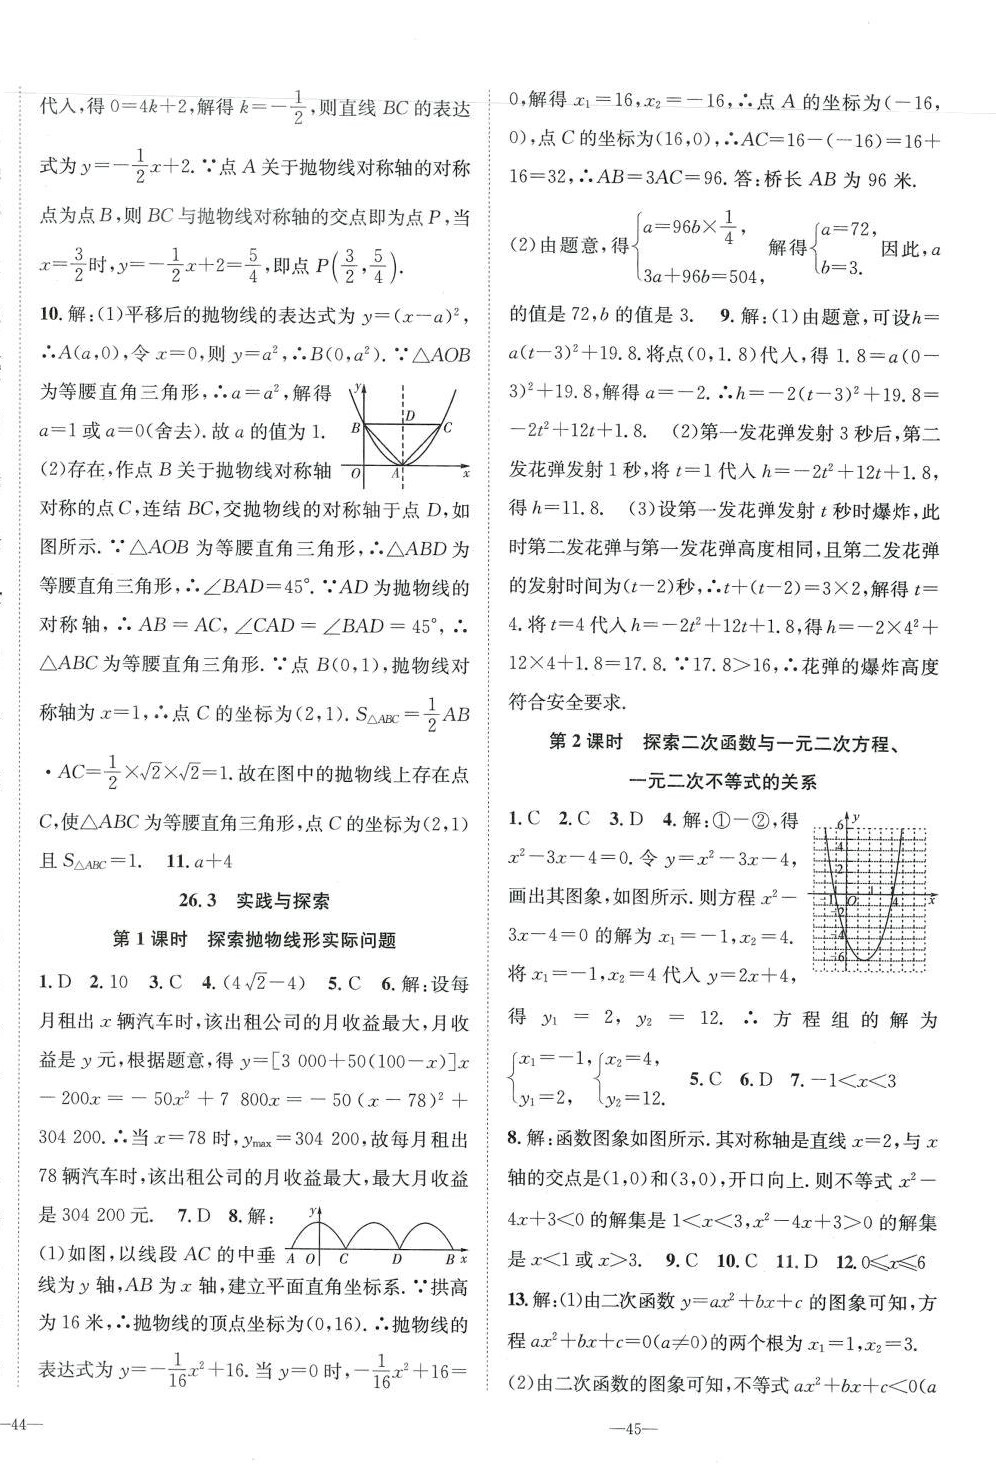 代入,得 0=4k+2,解得 k=-1/2,则直线 BC 的表达
式为 y=-1/2x+2.∵点 A 关于抛物线对称轴的对称
点为点 B,则 BC 与抛物线对称轴的交点即为点 P,当
x=3/2时,y=-1/2x+2=5/4,即点 P(3/2,5/4).
10.解:(1)平移后的抛物线的表达式为 y=(x-a)²,
∴A(a,0),令 x=0,则 y=a²,∴B(0,a²).∵△AOB
为等腰直角三角形,∴a=a²,解得
a=1 或 a=0(舍去).故 a 的值为 1.
(2)存在,作点 B 关于抛物线对称轴
y
B D C
O A x
对称的点 C,连结 BC,交抛物线的对称轴于点 D,如
图所示.∵△AOB 为等腰直角三角形,∴△ABD 为
等腰直角三角形,∴∠BAD=45°.∵AD 为抛物线的
对称轴,∴AB=AC,∠CAD=∠BAD=45°,∴
△ABC 为等腰直角三角形.∵点 B(0,1),抛物线对
称轴为 x=1,∴点 C 的坐标为(2,1).S△ABC=1/2AB
·AC=1/2×√2×√2=1.故在图中的抛物线上存在点
C,使△ABC 为等腰直角三角形,点 C 的坐标为(2,1)
且 S△ABC=1. 11.a+4
26.3 实践与探索
第 1 课时 探索抛物线形实际问题
1.D 2.10 3.C 4.(4√2-4) 5.C 6.解:设每
月租出 x 辆汽车时,该出租公司的月收益最大,月收
益是 y 元,根据题意,得 y=[3 000+50(100-x)]x
-200x=-50x²+7 800x=-50(x-78)²+
304 200.∴当 x=78 时,ymax=304 200,故每月租出
78 辆汽车时,该出租公司的月收益最大,最大月收益
是 304 200 元. 7.D 8.解:
(1)如图,以线段 AC 的中垂
y
A O C D B x
线为 y 轴,AB 为 x 轴,建立平面直角坐标系.∵拱高
为 16 米,∴抛物线的顶点坐标为(0,16).∴抛物线的
表达式为 y=-1/16x²+16.当 y=0 时,-1/16x²+16=
—44—
0,解得 x₁=16,x₂=-16,∴点 A 的坐标为(-16,
0),点 C 的坐标为(16,0),∴AC=16-(-16)=16+
16=32,∴AB=3AC=96.答:桥长 AB 为 96 米.
(2)由题意,得{a=96b×1/4, 3a+96b=504, 解得{a=72, b=3. 因此,a
的值是 72,b 的值是 3. 9.解:(1)由题意,可设h=
a(t-3)²+19.8.将点(0,1.8)代入,得 1.8=a(0-
3)²+19.8,解得 a=-2.∴h=-2(t-3)²+19.8=
-2t²+12t+1.8. (2)第一发花弹发射 3 秒后,第二
发花弹发射 1 秒,将 t=1 代入 h=-2t²+12t+1.8,
得 h=11.8. (3)设第一发花弹发射 t 秒时爆炸,此
时第二发花弹与第一发花弹高度相同,且第二发花弹
的发射时间为(t-2)秒,∴t+(t-2)=3×2,解得 t=
4.将 t=4 代入 h=-2t²+12t+1.8,得 h=-2×4²+
12×4+1.8=17.8.∵17.8>16,∴花弹的爆炸高度
符合安全要求.
第 2 课时 探索二次函数与一元二次方程、
一元二次不等式的关系
1.C 2.C 3.D 4.解:①-②,得
x²-3x-4=0.令 y=x²-3x-4,
画出其图象,如图所示.则方程 x²-
3x-4=0 的解为 x₁=-1,x₂=4.
将 x₁=-1,x₂=4 代入 y=2x+4,
6 y
4
2
-1 O 1 4 x
-2
-4
-6
得 y₁=2,y₂=12.∴方程组的解为
{x₁=-1, y₁=2, {x₂=4, y₂=12. 5.C 6.D 7.-1<x<3
8.解:函数图象如图所示.其对称轴是直线 x=2,与 x
轴的交点是(1,0)和(3,0),开口向上.则不等式 x²-
4x+3<0 的解集是 1<x<3,x²-4x+3>0 的解集
是 x<1 或 x>3. 9.C 10.C 11.D 12.0≤x≤6
13.解:(1)由二次函数 y=ax²+bx+c 的图象可知,方
程 ax²+bx+c=0(a≠0)的两个根为 x₁=1,x₂=3.
(2)由二次函数的图象可知,不等式 ax²+bx+c<0(a
—45—